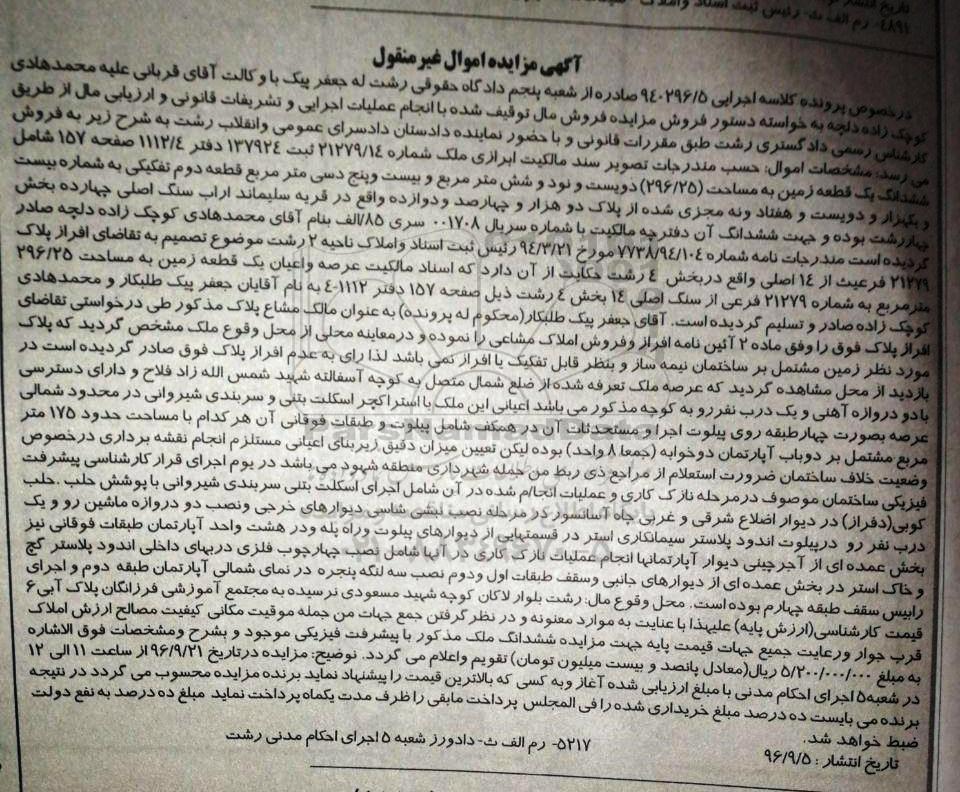 تاریخ انتشار
۴۸۹۱- رم الف ث- رئیس ثبت اسناد واملاک
آگهی مزایده اموال غیر منقول
درخصوص پرونده کلاسه اجرایی ۹۴۰۲۹۶/۵ صادره از شعبه پنجم دادگاه حقوقی رشت له جعفر پیک با وکالت آقای قربانی علیه محمدهادی
کوچک زاده دلچه به خواسته دستور فروش مزایده فروش مال توقیف شده با انجام عملیات اجرایی و تشریفات قانونی و ارزیابی مال از طریق
کارشناس رسمی دادگستری رشت طبق مقررات قانونی و با حضور نماینده دادستان دادسرای عمومی وانقلاب رشت به شرح زیر به فروش
می رسد: مشخصات اموال: حسب مندرجات تصویر سند مالکیت ابرازی ملک شماره ۲۱۲۷۹/۱۴ ثبت ۱۳۷۹۲۴ دفتر ۱۱۱۲/۴ صفحه ۱۵۷ شامل
ششدانگ یک قطعه زمین به مساحت (۲۹۶/۲۵) دویست و نود و شش متر مربع و بیست وپنج دسی متر مربع قطعه دوم تفکیکی به شماره بیست
و یکهزار و دویست و هفتاد ونه مجزی شده از پلاک دو هزار و چهارصد ودوازده واقع در قریه سلیماند اراب سنگ اصلی چهارده بخش
چهاررشت بوده و جهت ششدانگ آن دفترچه مالکیت با شماره سریال ۰۰۱۷۰۸ سری ۸۵/الف بنام آقای محمدهادی کوچک زاده دلچه صادر
گردیده است مندرجات نامه شماره ۷۷۳۸/۹۴/۱۰۴ مورخ ۹۴/۳/۲۱ رئیس ثبت اسناد واملاک ناحیه ۲ رشت موضوع تصمیم به تقاضای افراز پلاک
۲۱۲۷۹ فرعیت از ۱۴ اصلی واقع دربخش ۴ رشت حکایت از آن دارد که اسناد مالکیت عرصه واعیان یک قطعه زمین به مساحت ۲۹۶/۲۵
مترمربع به شماره ۲۱۲۷۹ فرعی از سنگ اصلی ۱۴ بخش ۴ رشت ذیل صفحه ۱۵۷ دفتر ۱۱۱۲-۴ به نام آقایان جعفر پیک طلبکار و محمدهادی
کوچک زاده صادر و تسلیم گردیده است. آقای جعفر پیک طلبکار(محکوم له پرونده) به عنوان مالک مشاع پلاک مذکور طی درخواستی تقاضای
افراز پلاک فوق را وفق ماده ۲ آئین نامه افراز وفروش املاک مشاعی را نموده و درمعاینه محلی از محل وقوع ملک مشخص گردید که پلاک
مورد نظر زمین مشتمل بر ساختمان نیمه ساز و بنظر قابل تفکیک یا افراز نمی باشد لذا رای به عدم افراز پلاک فوق صادر گردیده است در
بازدید از محل مشاهده گردید که عرصه ملک تعرفه شده از ضلع شمال متصل به کوچه آسفالته شهید شمس الله زاد فلاح و دارای دسترسی
بادو دروازه آهنی و یک درب نفررو به کوچه مذکور می باشد اعیانی این ملک با استراکچر اسکلت بتنی و سربندی شیروانی در محدود شمالی
عرصه بصورت چهارطبقه روی پیلوت اجرا و مستحدثات آن در همکف شامل پیلوت و طبقات فوقانی آن هر کدام با مساحت حدود ۱۷۵ متر
مربع مشتمل بر دوباب آپارتمان دوخوابه (جمعا ۸ واحد) بوده لیکن تعیین میزان دقیق زیربنای اعیانی مستلزم انجام نقشه برداری درخصوص
وضعیت خلاف ساختمان ضرورت استعلام از مراجع ذی ربط من جمله شهرداری منطقه شهود می باشد در یوم اجرای قرار کارشناسی پیشرفت
فیزیکی ساختمان موصوف درمرحله نازک کاری و عملیات انجام شده در آن شامل اجرای اسکلت بتنی سربندی شیروانی با پوشش حلب .حلب
کوبی(دفراز) در دیوار اضلاع شرقی و غربی چاه آسانسور در مرحله نصب نبشی شاسی دیوارهای خرجی ونصب دو دروازه ماشین رو و یک
درب نفر رو درپیلوت اندود پلاستر سیمانکاری استر در قسمتهایی از دیوارهای پیلوت وراه پله ودر هشت واحد آپارتمان طبقات فوقانی نیز
بخش عمده ای از آجرچینی دیوار آپارتمانها انجام عملیات نازک کاری در آنها شامل نصب چهارچوب فلزی دربهای داخلی اندود پلاستر گچ
و خاک استر در بخش عمده ای از دیوارهای جانبی وسقف طبقات اول ودوم نصب سه لنگه پنجره در نمای شمالی آپارتمان طبقه دوم و اجرای
رابیس سقف طبقه چهارم بوده است. محل وقوع مال: رشت بلوار لاکان کوچه شهید مسعودی نرسیده به مجتمع آموزشی فرزانگان پلاک آبی ۶
قیمت کارشناسی(ارزش پایه) علیهذا با عنایت به موارد معنونه و در نظر گرفتن جمع جهات من جمله موقیت مکانی کیفیت مصالح ارزش املاک
قرب جوار ورعایت جمیع جهات قیمت پایه جهت مزایده ششدانگ ملک مذکور با پیشرفت فیزیکی موجود و بشرح ومشخصات فوق الاشاره
به مبلغ ۵/۲۰۰/۰۰۰/۰۰۰ ریال(معادل پانصد و بیست میلیون تومان) تقویم واعلام می گردد. توضیح: مزایده درتاریخ ۹۶/۹/۲۱ از ساعت ۱۱ الی ۱۲
در شعبه۵ اجرای احکام مدنی با مبلغ ارزیابی شده آغاز وبه کسی که بالاترین قیمت را پیشنهاد نماید برنده مزایده محسوب می گردد در نتیجه
برنده می بایست ده درصد مبلغ خریداری شده را فی المجلس پرداخت مابقی را ظرف مدت یکماه پرداخت نماید مبلغ ده درصد به نفع دولت
ضبط خواهد شد.
۵۲۱۷- رم الف ث- دادورز شعبه ۵ اجرای احکام مدنی رشت
تاریخ انتشار : ۹۶/۹/۵